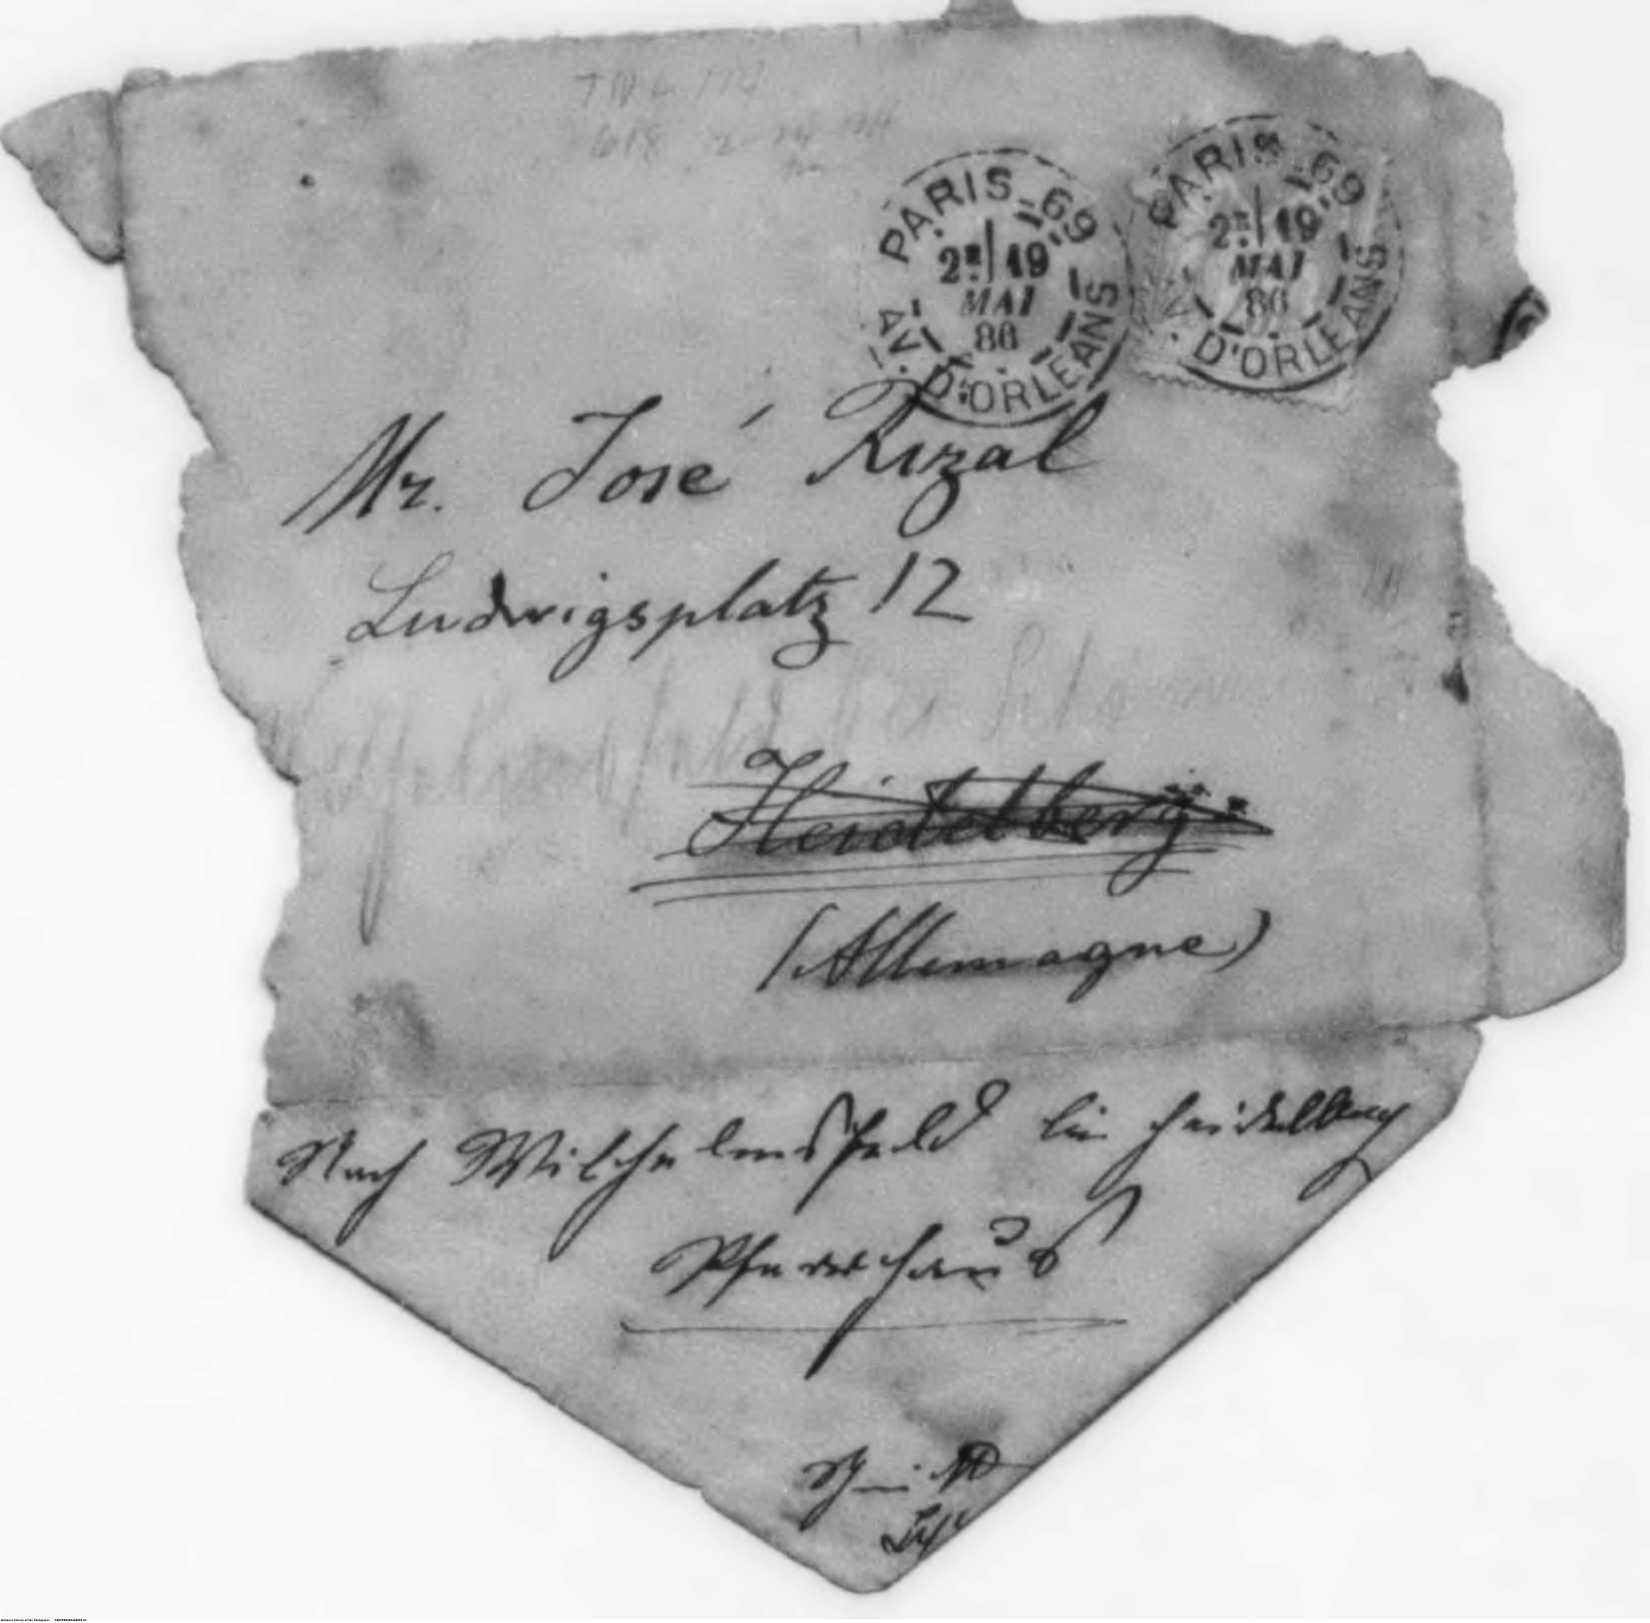 PARIS-69
2E 19
MAI
86
AV. D'ORLEANS
PARIS-69
2E 19
MAI
86
AV. D'ORLEANS
Mr. José Rizal
Ludwigsplatz 12
Heidelberg
(Allemagne)
Nach Wilhelmsfeld bei Heidelberg
Pfarrhaus